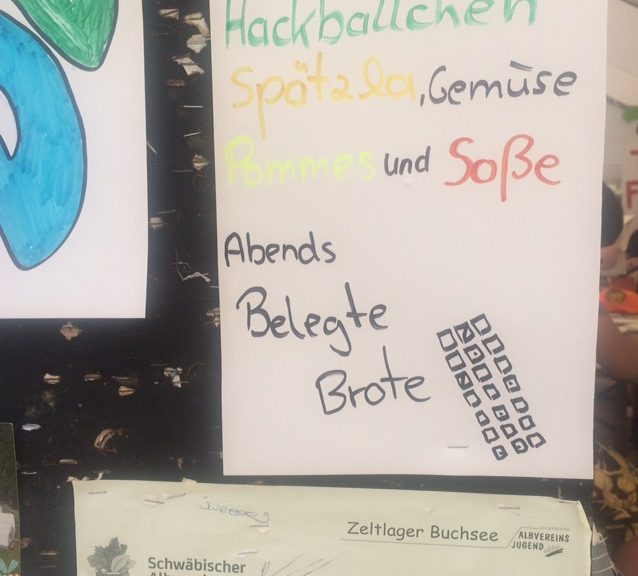 Hackbällchen
Spätzla, Gemüse
Pommes und Soße
Abends
Belegte
Brote
Zeltlager Buchsee
ALBVEREINS
JUGEND
Schwäbischer